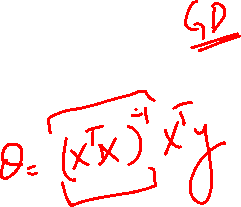 GD
θ = (XᵀX)⁻¹ Xᵀy